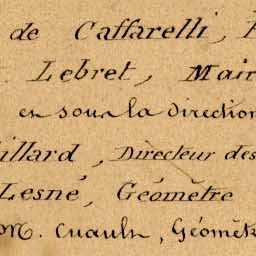 de Caffarelli,
Lebret, Mair
en sous la direction
illard, Directeur des
Lesné, Géomètre
M. Cuault, Géomèt